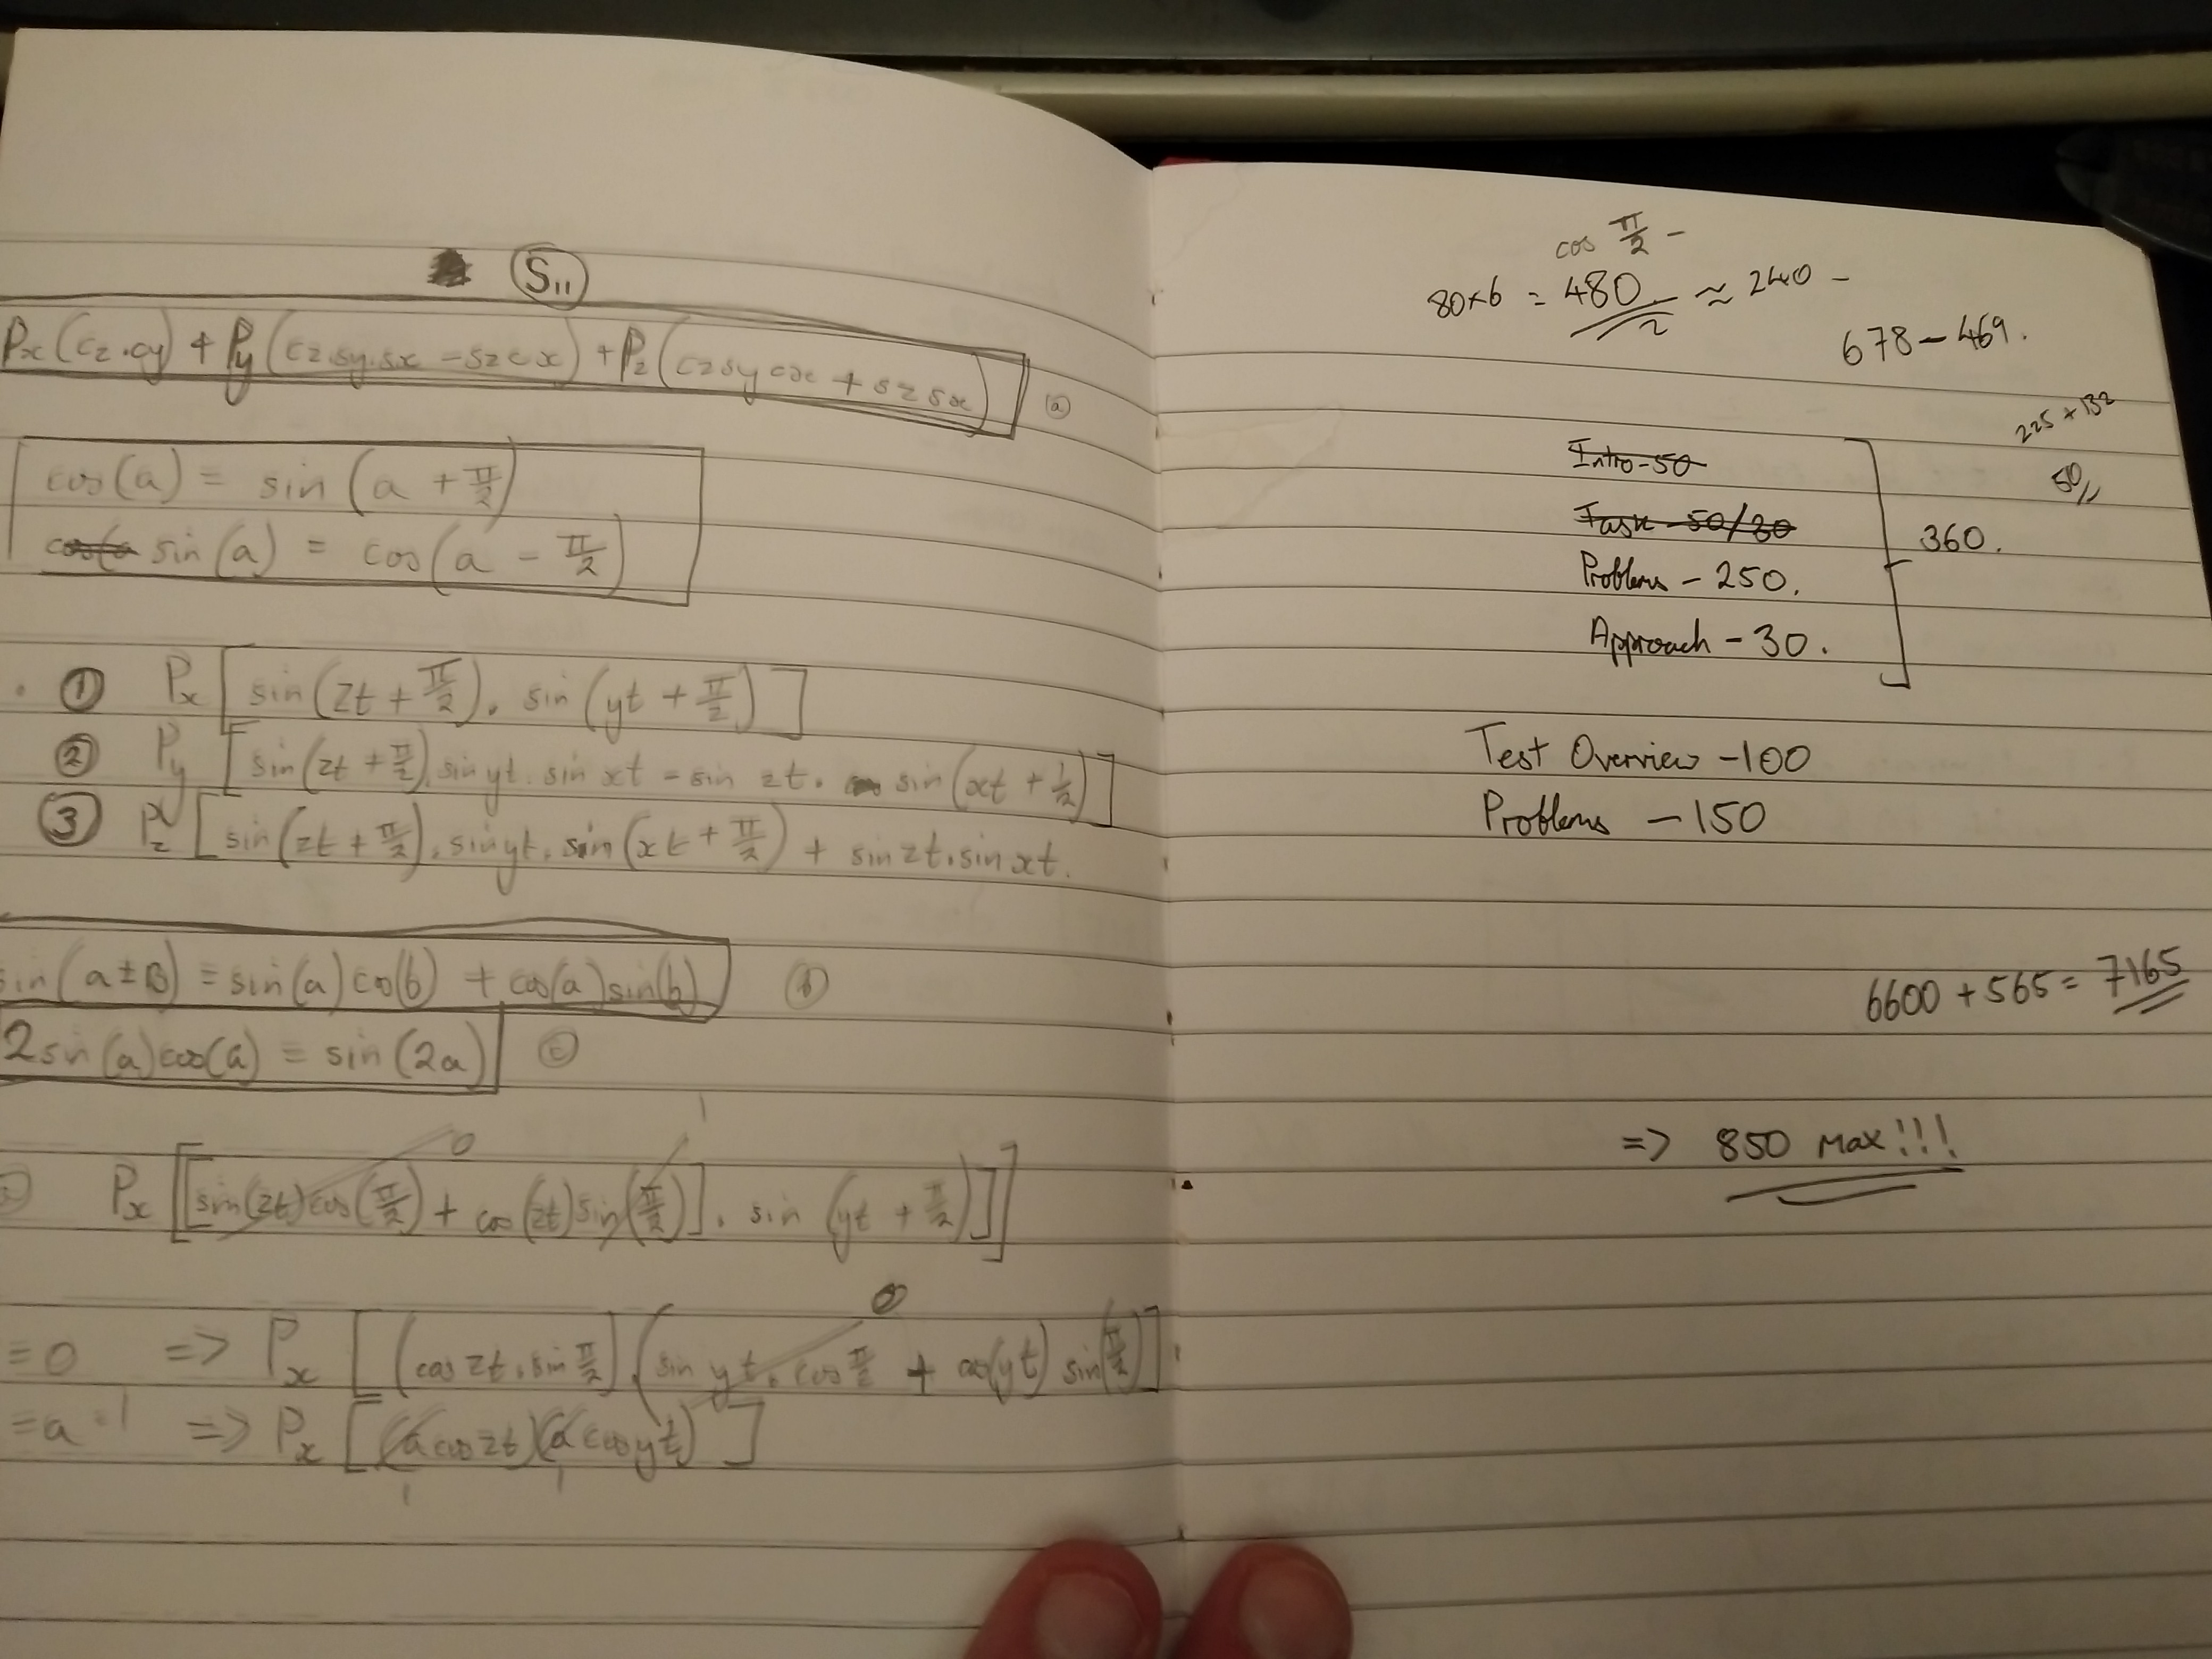 S₁₁
Px(cz.cy) + Py(cz.sy.sx - szcx) + Pz(czsycx + szsx) ⓐ
cos(a) = sin(a + π/2)
sin(a) = cos(a - π/2)
① Px[sin(zt + π/2). sin(yt + π/2)]
② Py[sin(zt + π/2).sin yt. sin xt - sin zt. sin(xt + 1/2)]
③ Pz[sin(zt + π/2). sin yt. sin(xt + π/2) + sin zt. sin xt.
sin(a ± B) = sin(a)cos(b) + cos(a)sin(b) ⓑ
2sin(a)cos(a) = sin(2a) ⓒ
0 1
Px[[sin(zt)cos(π/2) + cos(zt)sin(π/2)]. sin(yt + π/2)]]
0
= 0 => Px[(cos zt. sin π/2).(sin yt. cos π/2 + cos(yt) sin(π/2)]
= a = 1 => Px[(a cos zt)(a cos yt)]
1 1
cos π/2 -
80×6 = 480/2 ≈ 240 -
678 - 469.
225 + 132
50//
Intro - 50
Task - 50/30
360.
Problems - 250.
Approach - 30.
Test Overview - 100
Problems - 150
6600 + 565 = 7165
=> 850 Max!!!